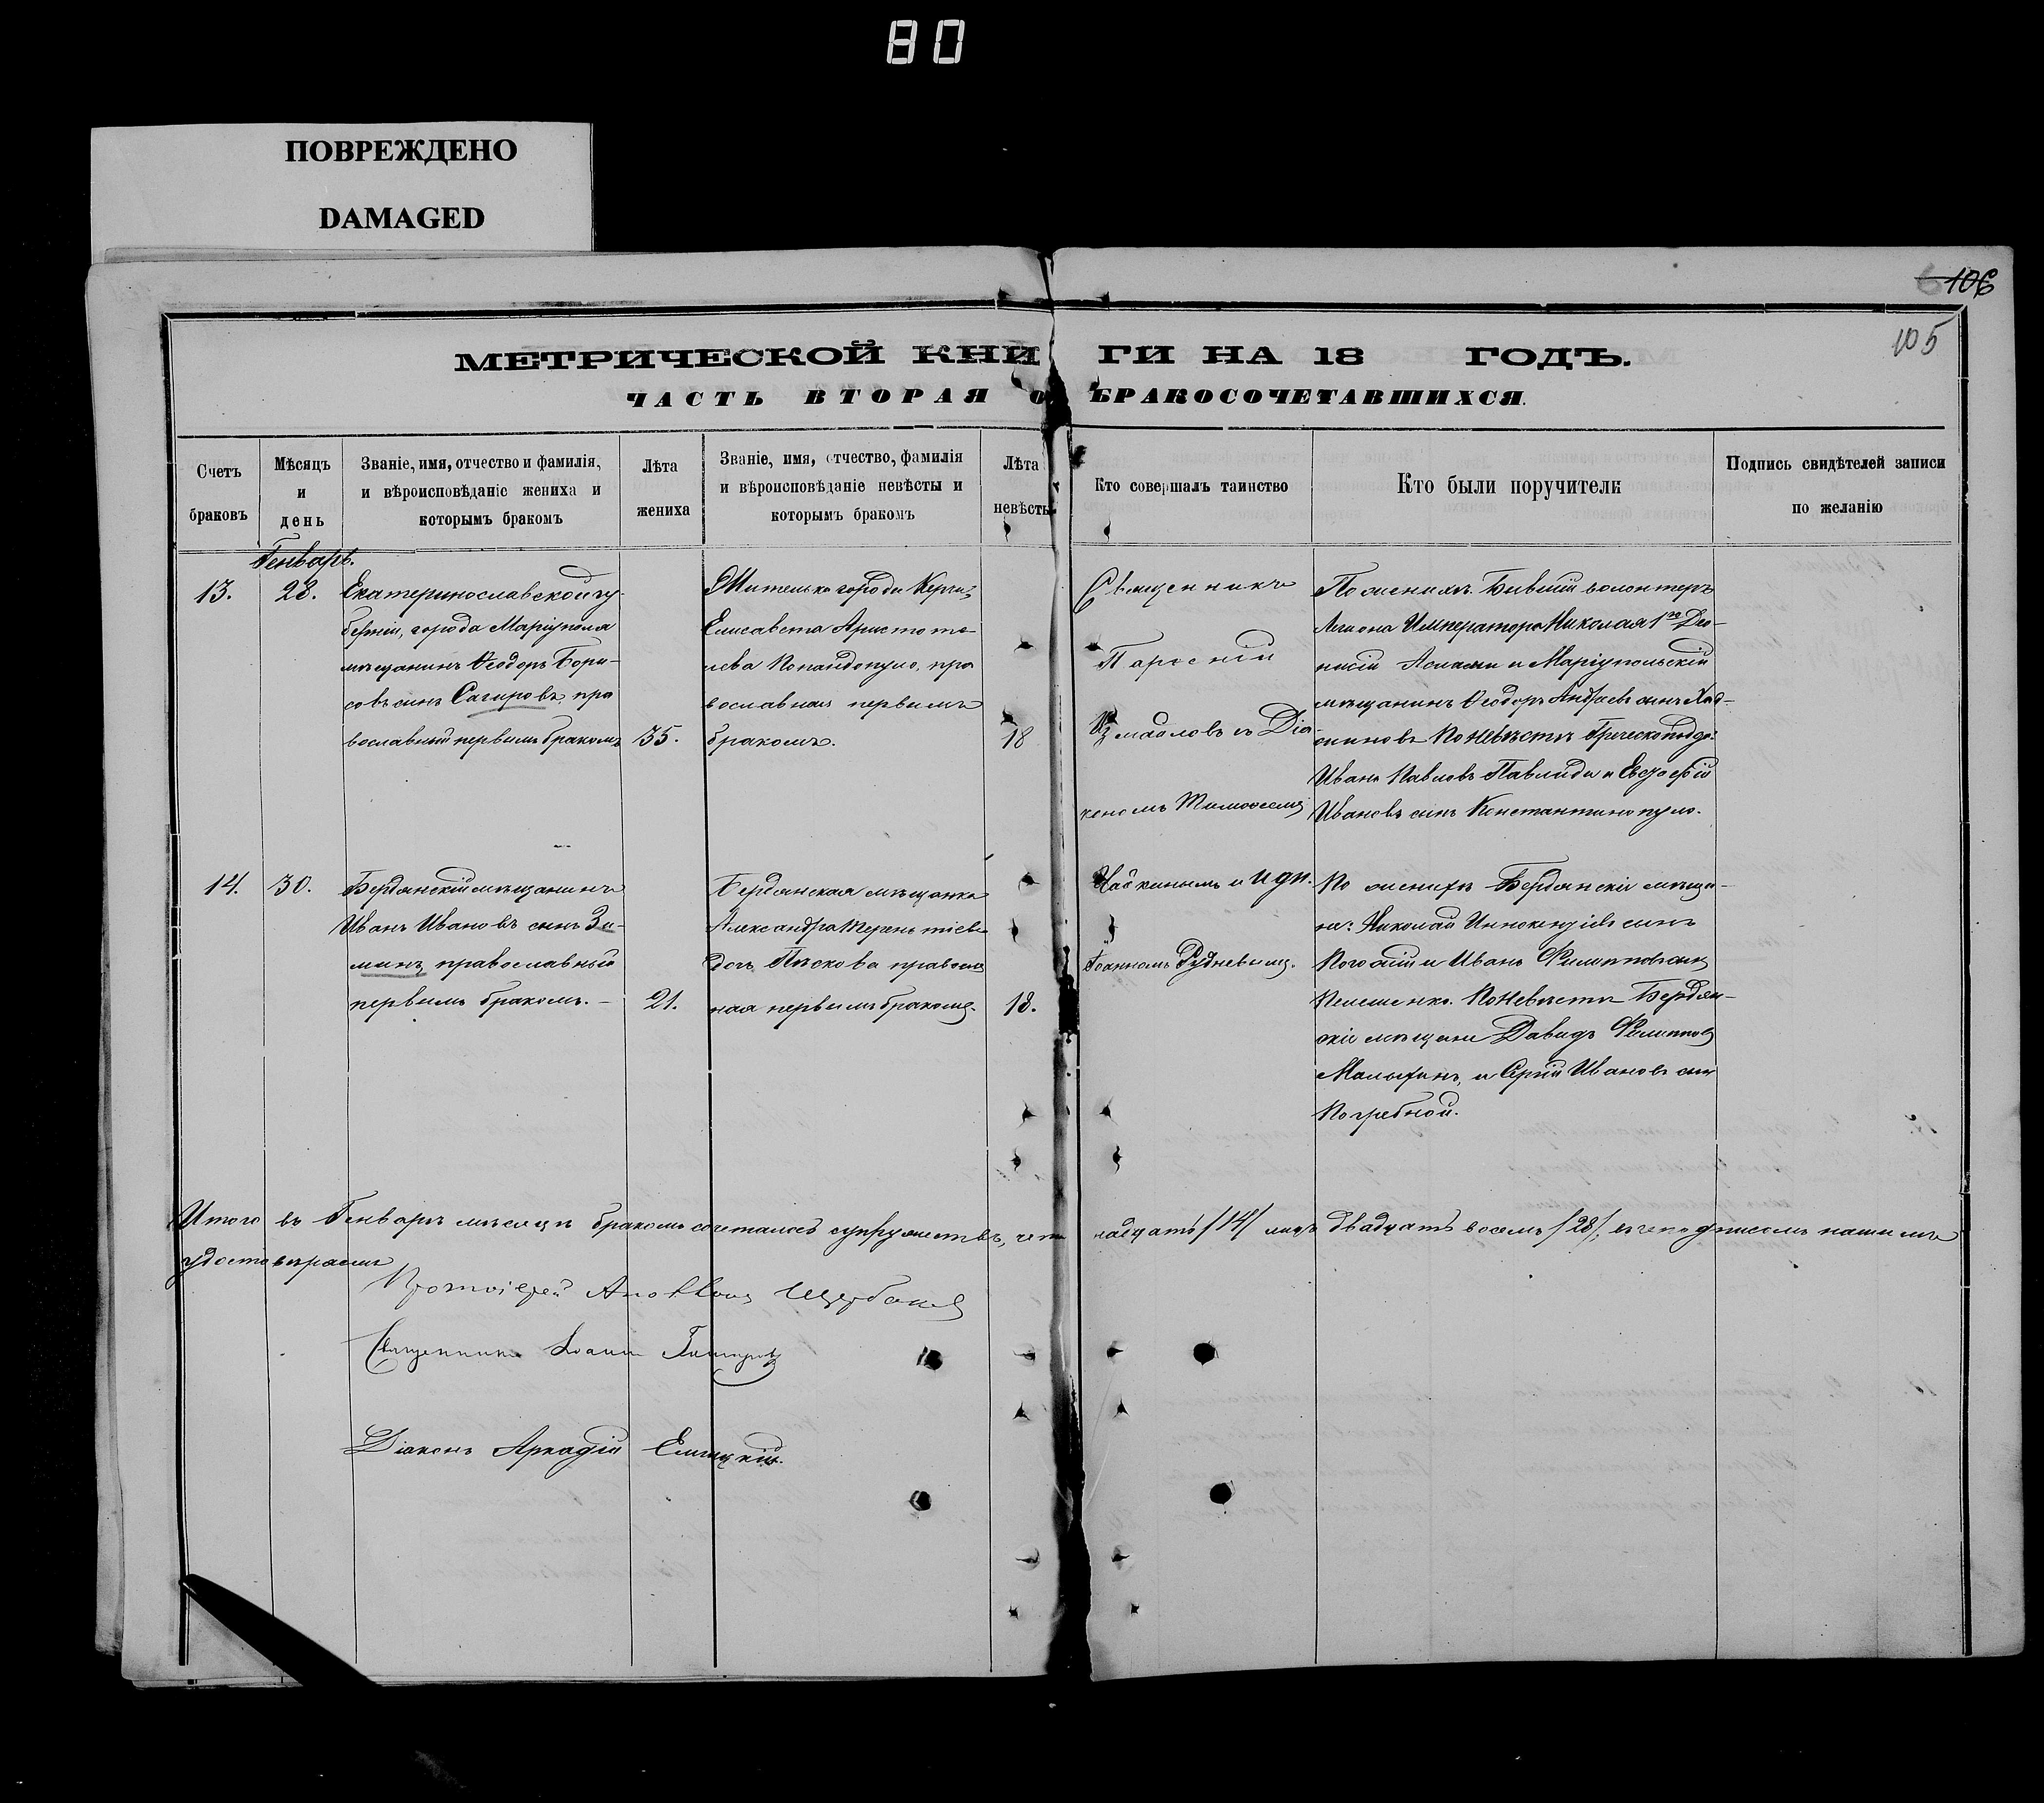 80
ПОВРЕЖДЕНО
DAMAGED
106
105
МЕТРИЧЕСКОЙ КНИГИ НА 18 ГОДЪ.
ЧАСТЬ ВТОРАЯ О БРАКОСОЧЕТАВШИХСЯ.
Счетъ браковъ
Мѣсяцъ и день
Званіе, имя, отчество и фамилія, и вѣроисповѣданіе жениха и которымъ бракомъ
Лѣта жениха
Званіе, имя, отчество, фамилія и вѣроисповѣданіе невѣсты и которымъ бракомъ
Лѣта невѣсты
Кто совершалъ таинство
Кто были поручители
Подпись свидѣтелей записи по желанію
Генварь.
13.
28.
Екатеринославской гу-
берніи, города Маріуполя
мѣщанинъ Ѳеодоръ Бори-
совъ сынъ Сагировъ, пра
вославный первымъ бракомъ
35.
Жителька города Керчи,
Елисавета Аристоте-
лева Попандопуло, пра
вославная первымъ
бракомъ.
18
Священникъ
Измаиловъ съ Діа-
кономъ Тимоѳеемъ
По женихѣ: Бывшій волонтеръ
Легіона Императора Николая 1го Діо-
нисій и Маріупольскій
мѣщанинъ Ѳеодоръ Андреевъ сынъ
По невѣстѣ Греческоподд:
Иванъ Павловъ Павлиди и
Ивановъ сынъ Константинопуло.
14.
30.
Бердянскій мѣщанинъ
Иванъ Ивановъ сынъ За-
минъ, православный
первымъ бракомъ. —
21.
Бердянская мѣщанка
Александра Терентіева
дочь, Пѣскова православ
ная первымъ бракомъ.
18.
Чайкинымъ и
Іоанномъ Рудневымъ.
По женихѣ Бердянскіе мѣща-
не: Николай Иннокентіевъ сынъ
и Иванъ Филипповъ сынъ
Пелешенко. По невѣстѣ Бердян-
скіе мѣщане Давидъ Филипповъ
Малыхинъ, и Сергій Ивановъ сын
Погребной.
Итого въ Генварѣ мѣсяцѣ бракомъ сочеталось супружествъ, четырнадцать /14/ лицъ двадцать восемь /28/, въ чемъ подписомъ нашимъ
удостовѣряемъ
Протоіерей Щербаковъ
Священникъ Іоаннъ
Діаконъ Аркадій Елецкій.